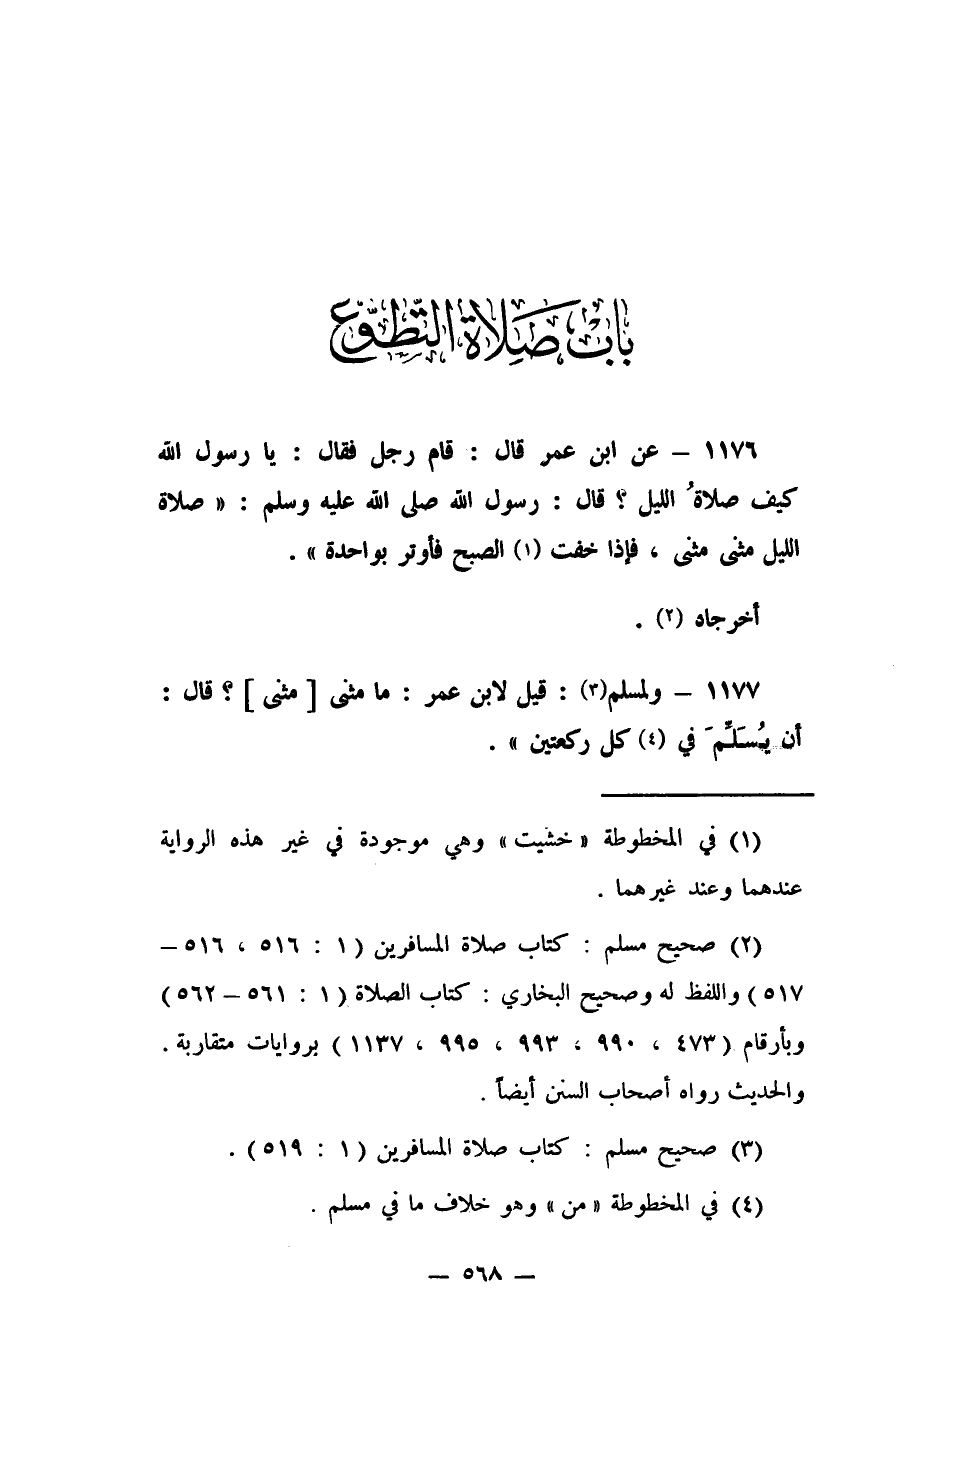 باب صلاة التطوع
١١٧٦ – عن ابن عمر قال : قام رجل فقال : يا رسول الله
كيف صلاةُ الليل ؟ قال : رسول الله صلى الله عليه وسلم : « صلاة
الليل مثنى مثنى ، فإذا خفت (١) الصبح فأوتر بواحدة » .
أخرجاه (٢) .
١١٧٧ – ولمسلم(٣) : قيل لابن عمر : ما مثنى [ مثنى ] ؟ قال :
أن يُسَلِّمَ في (٤) كل ركعتين » .
(١) في المخطوطة « خشيت » وهي موجودة في غير هذه الرواية
عندهما وعند غيرهما .
(٢) صحيح مسلم : كتاب صلاة المسافرين ( ١ : ٥١٦ ، ٥١٦ –
٥١٧ ) واللفظ له وصحيح البخاري : كتاب الصلاة ( ١ : ٥٦١ – ٥٦٢ )
وبأرقام ( ٤٧٣ ، ٩٩٠ ، ٩٩٣ ، ٩٩٥ ، ١١٣٧ ) بروايات متقاربة .
والحديث رواه أصحاب السنن أيضاً .
(٣) صحيح مسلم : كتاب صلاة المسافرين ( ١ : ٥١٩ ) .
(٤) في المخطوطة « من » وهو خلاف ما في مسلم .
– ٥٦٨ –